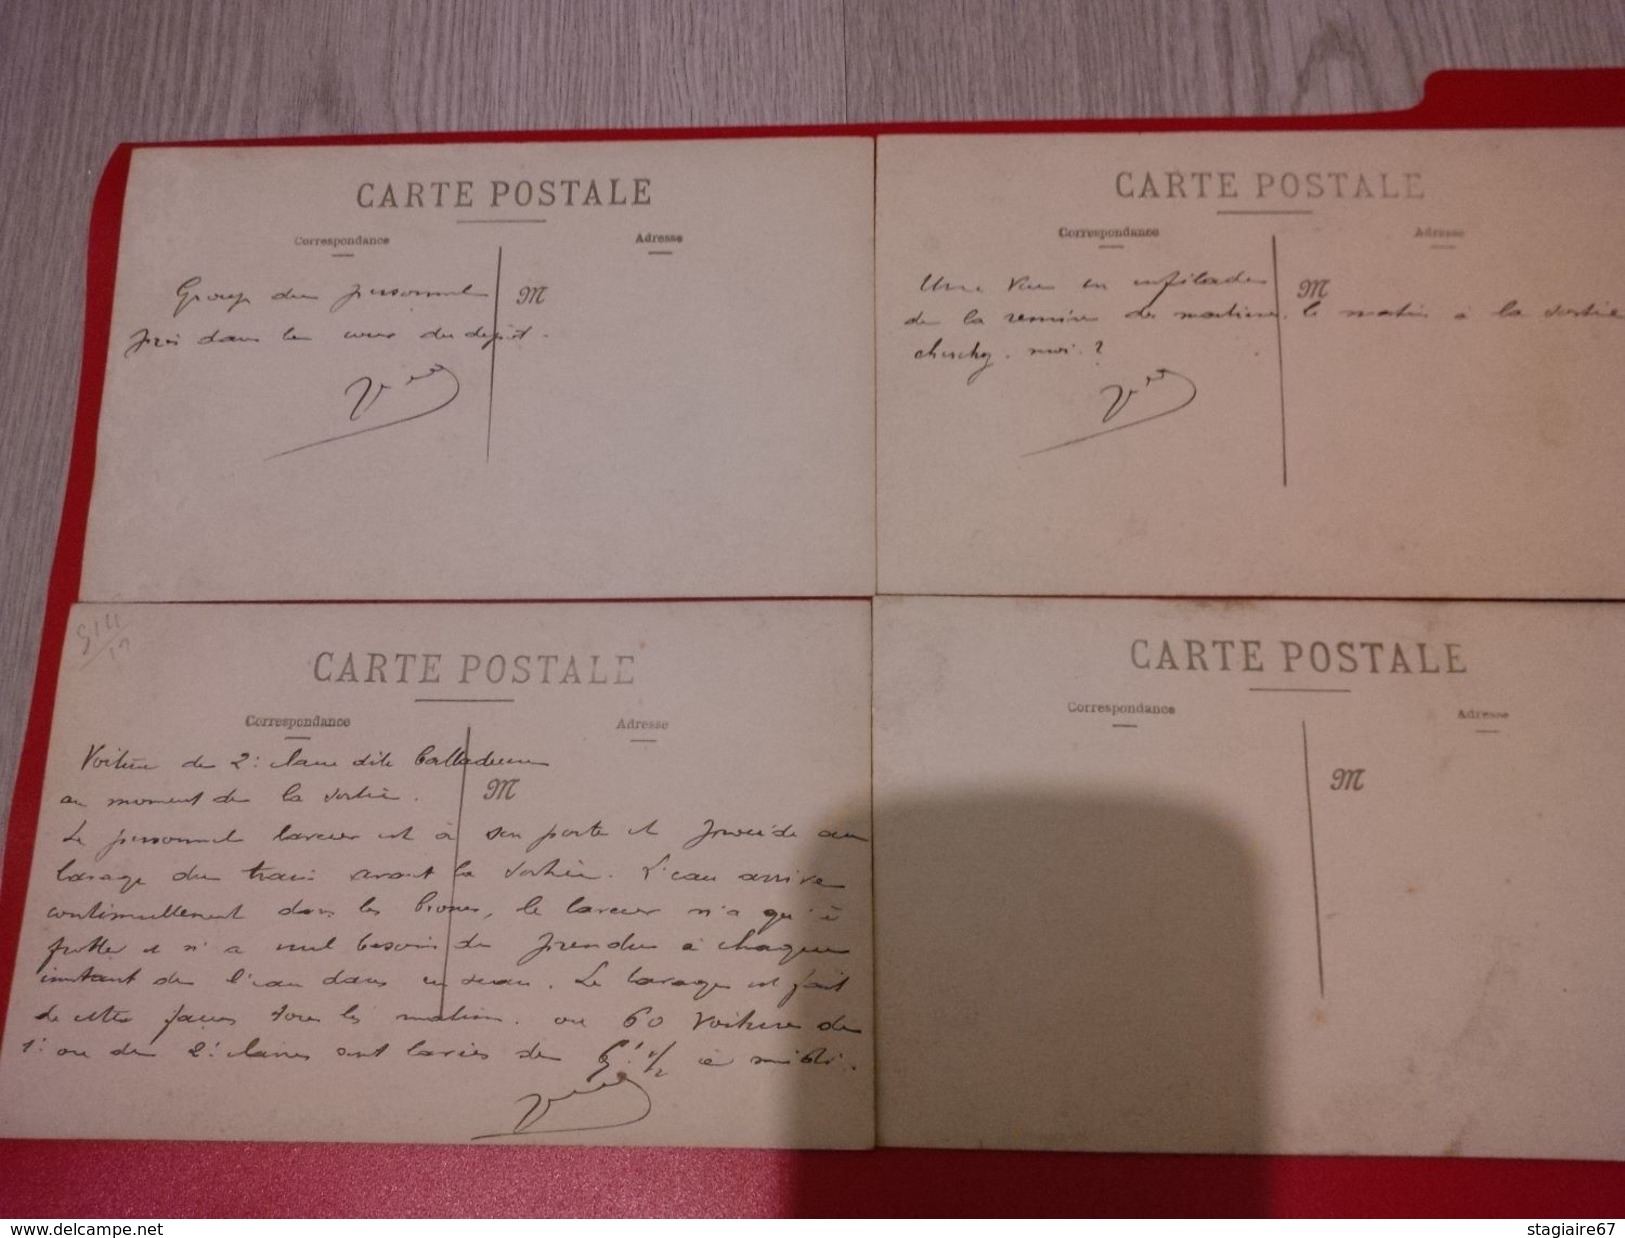 CARTE POSTALE
Correspondance
Adresse
M
Groupe du personnel
pris dans la cour du dépôt.
CARTE POSTALE
Correspondance
Adresse
M
Une vue en enfilade
de la remise des matières. le matin à la sortie
cherchez. moi. ?
CARTE POSTALE
Correspondance
Adresse
M
Voiture de 2e classe dite Balladeuse
au moment de la sortie.
Le personnel laveur est à son poste et procède au
lavage du train avant la sortie. L'eau arrive
continuellement dans les brosses, le laveur n'a qu'à
frotter et n'a nul besoin de prendre à chaque
instant de l'eau dans un seau. Le lavage est fait
de cette façon tous les matins. ou 60 voitures de
1e ou de 2e classes sont lavées de 1/2 à midi.
CARTE POSTALE
Correspondance
Adresse
M
www.delcampe.net
stagiaire67